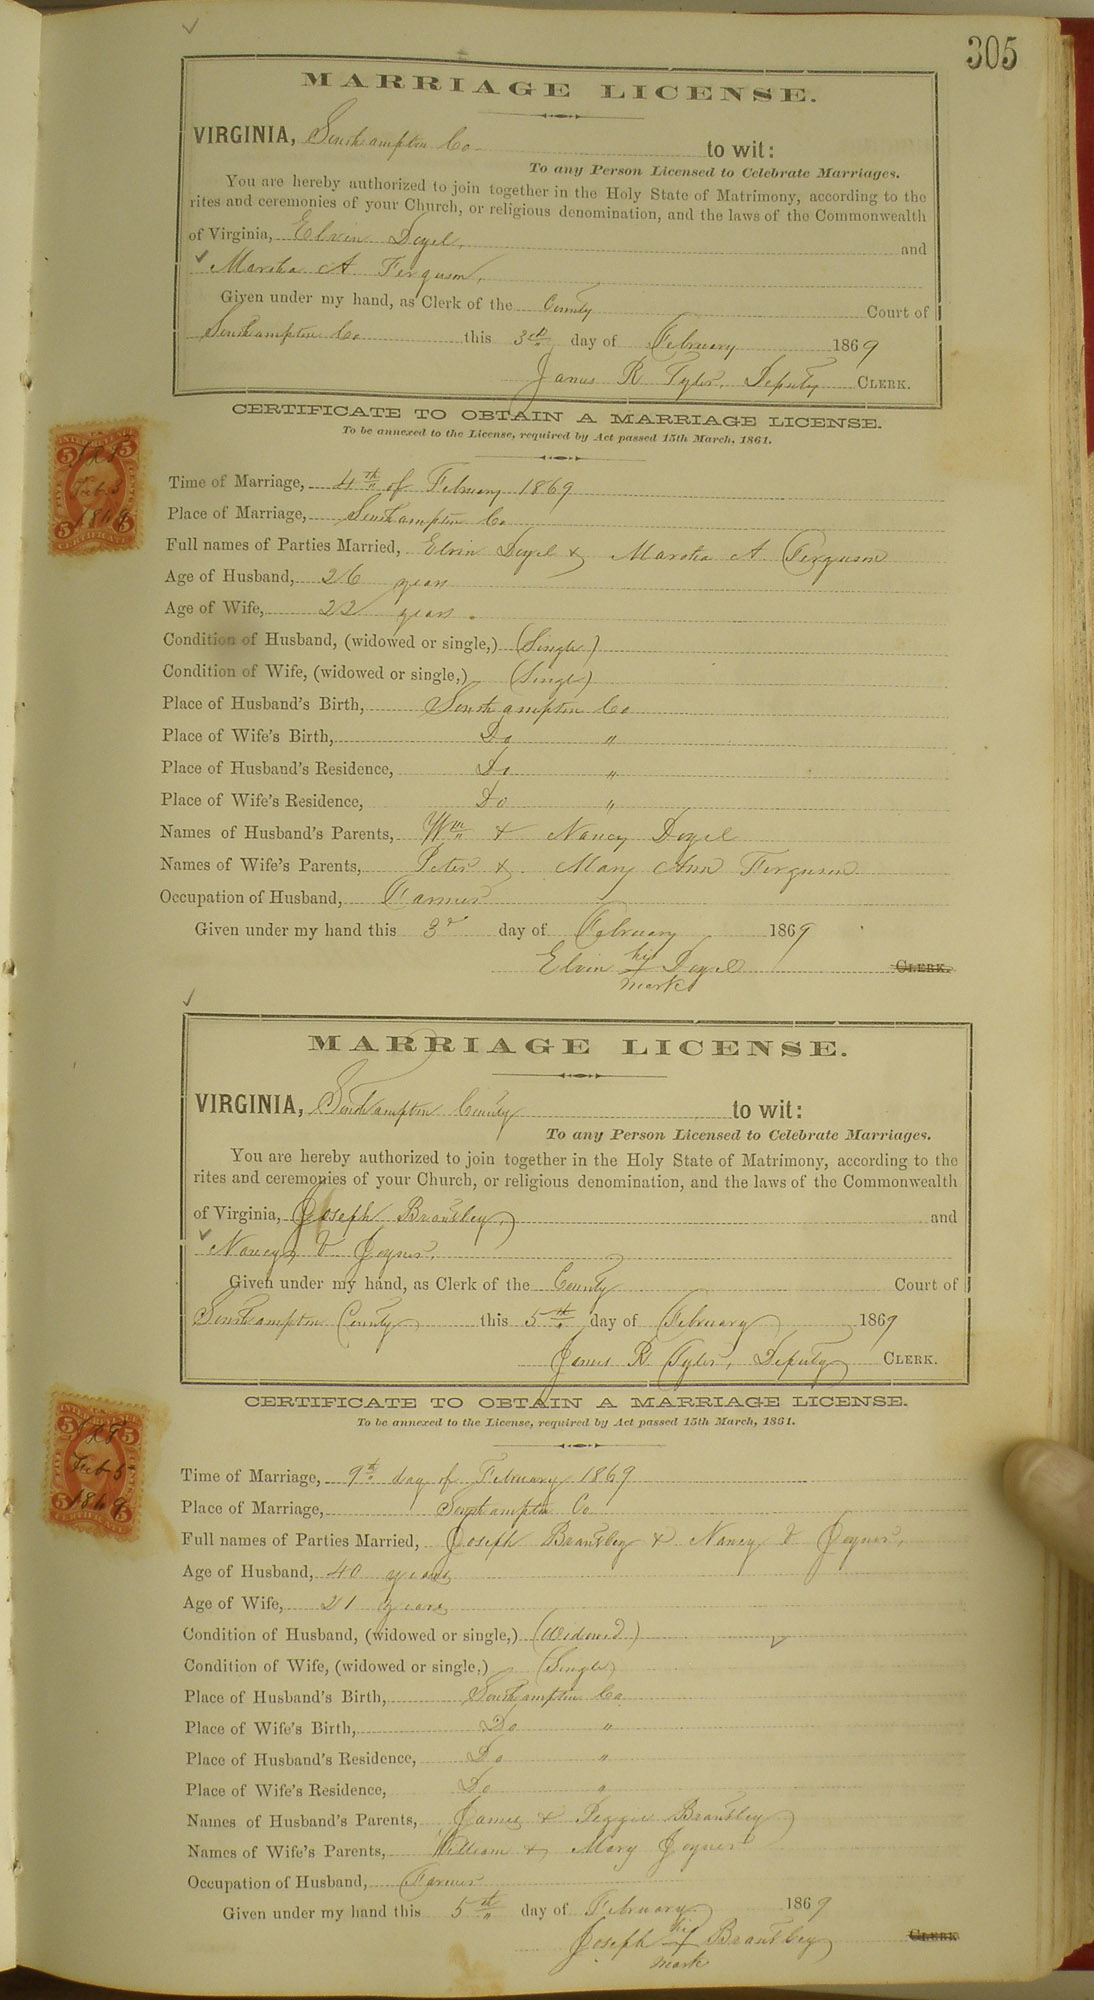 305
MARRIAGE LICENSE.
VIRGINIA, Southampton Co to wit:
To any Person Licensed to Celebrate Marriages.
You are hereby authorized to join together in the Holy State of Matrimony, according to the
rites and ceremonies of your Church, or religious denomination, and the laws of the Commonwealth
of Virginia, Elvin Doyel, and
Martha A Ferguson,
Given under my hand, as Clerk of the County Court of
Southampton Co this 3rd day of February 1869
James R Tyler, Deputy CLERK.
CERTIFICATE TO OBTAIN A MARRIAGE LICENSE.
To be annexed to the License, required by Act passed 15th March, 1861.
Feb 3
1869
Time of Marriage, 4th of February 1869
Place of Marriage, Southampton Co
Full names of Parties Married, Elvin Doyel & Martha A Ferguson
Age of Husband, 26 years
Age of Wife, 22 years.
Condition of Husband, (widowed or single,) (Single)
Condition of Wife, (widowed or single,) (Single)
Place of Husband's Birth, Southampton Co
Place of Wife's Birth, Do "
Place of Husband's Residence, Do "
Place of Wife's Residence, Do "
Names of Husband's Parents, Wm & Nancy Doyel
Names of Wife's Parents, Peter & Mary Ann Ferguson
Occupation of Husband, Farmer
Given under my hand this 3d day of February 1869
Elvin his Doyel CLERK.
mark
MARRIAGE LICENSE.
VIRGINIA, Southampton County to wit:
To any Person Licensed to Celebrate Marriages.
You are hereby authorized to join together in the Holy State of Matrimony, according to the
rites and ceremonies of your Church, or religious denomination, and the laws of the Commonwealth
of Virginia, Joseph Brantley, and
Nancy V Joyner,
Given under my hand, as Clerk of the County Court of
Southampton County this 5th day of February 1869
James R Tyler, Deputy CLERK.
CERTIFICATE TO OBTAIN A MARRIAGE LICENSE.
To be annexed to the License, required by Act passed 15th March, 1861.
Feb 5
1869
Time of Marriage, 9th day of February 1869
Place of Marriage, Southampton Co
Full names of Parties Married, Joseph Brantley & Nancy V Joyner,
Age of Husband, 40 years
Age of Wife, 21 years
Condition of Husband, (widowed or single,) (Widowed)
Condition of Wife, (widowed or single,) (Single)
Place of Husband's Birth, Southampton Co
Place of Wife's Birth, Do "
Place of Husband's Residence, Do "
Place of Wife's Residence, Do "
Names of Husband's Parents, James & Peggie Brantley
Names of Wife's Parents, William & Mary Joyner
Occupation of Husband, Farmer
Given under my hand this 5th day of February 1869
Joseph his Brantley CLERK
mark